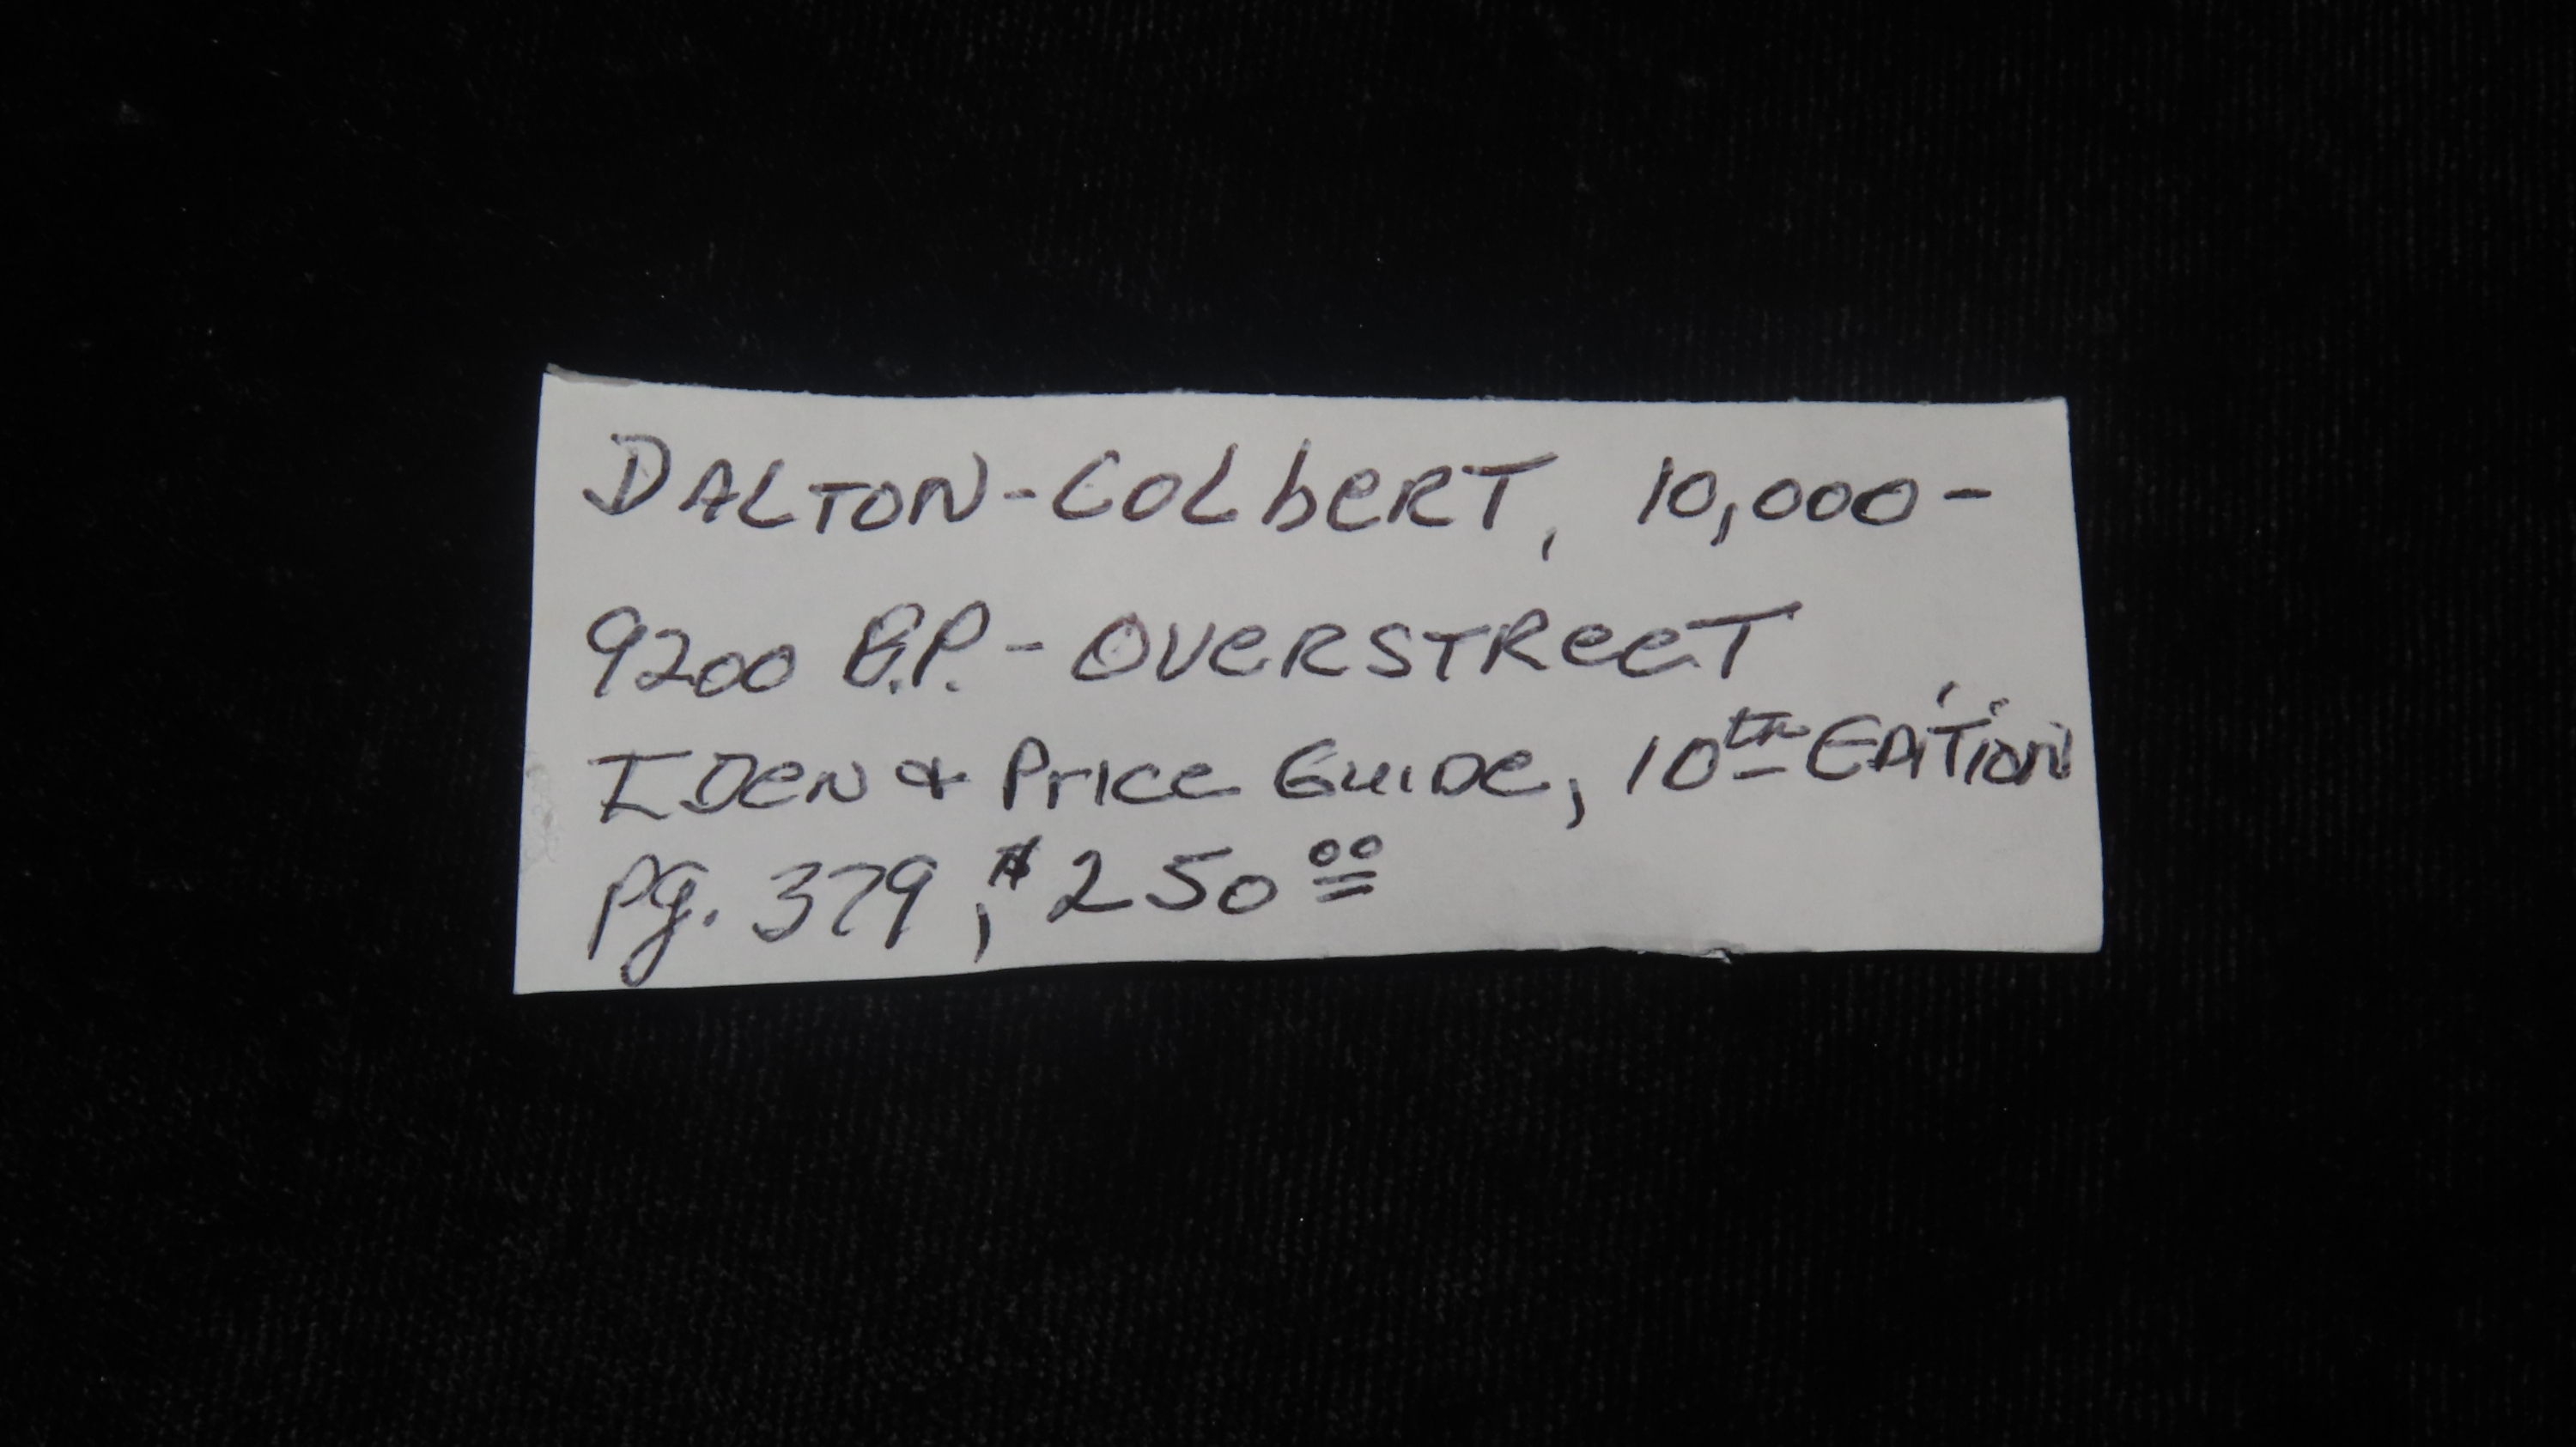 DALTON-COLbeRT, 10,000-
9200 B.P. - OVeRSTReeT
IDeN & PrICe GuIDe, 10th EDiTioN
Pg. 379, $250.00